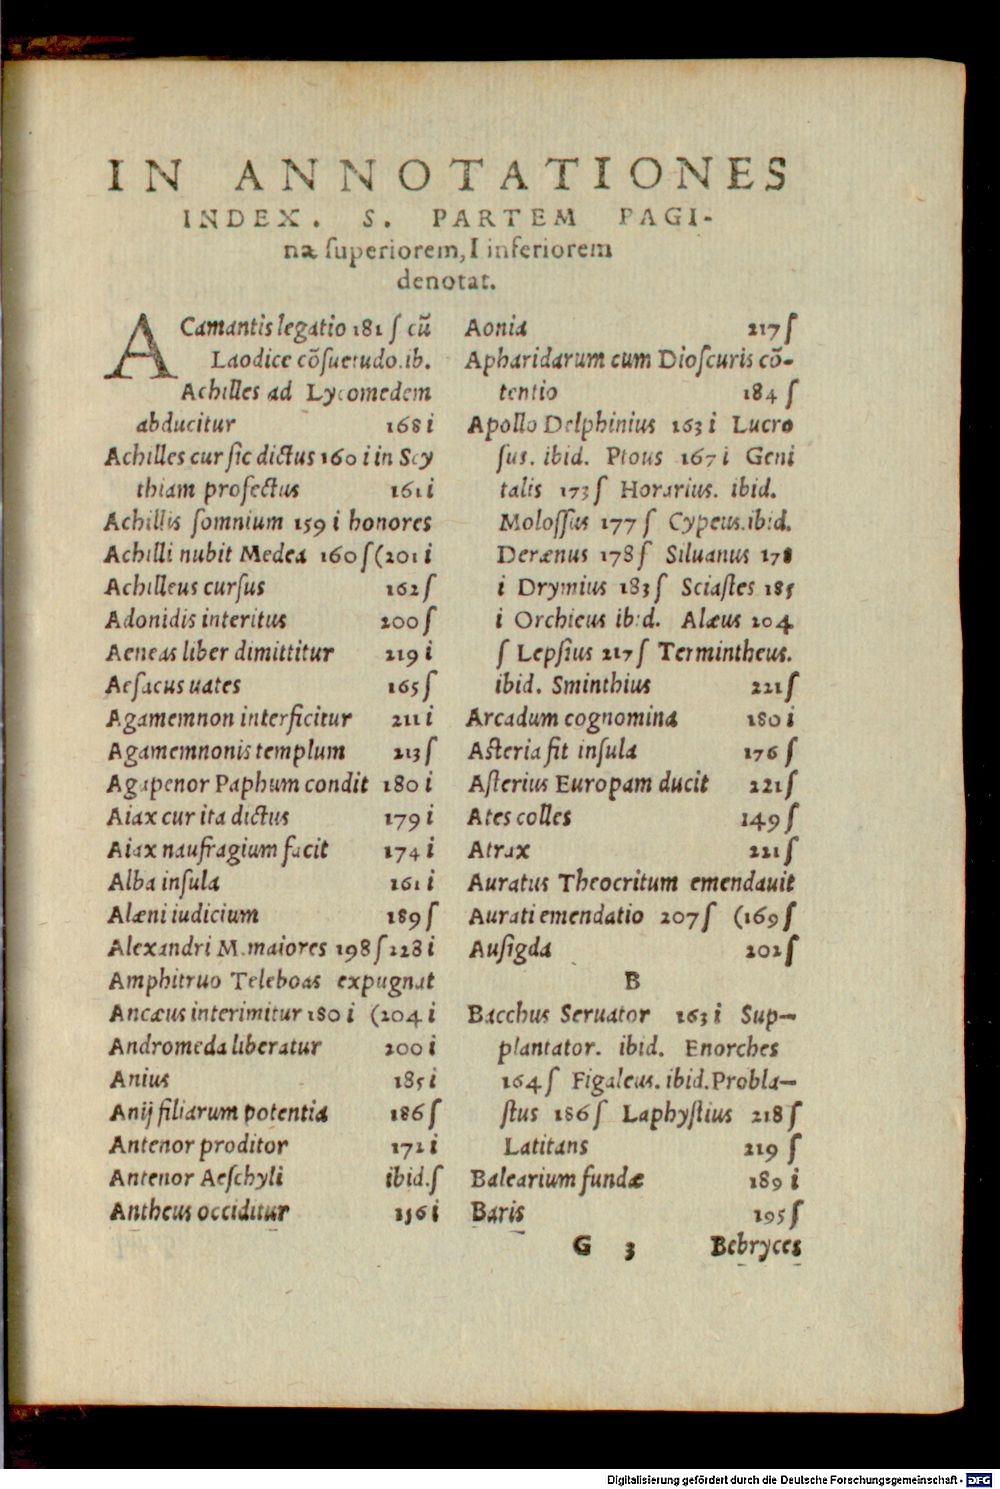 IN ANNOTATIONES
INDEX. S. PARTEM PAGI-
næ ſuperiorem, I inferiorem
denotat.
ACamantis legatio 181 ſ cū
Laodice cōſuetudo. ib.
Achilles ad Lycomedem
abducitur 168 i
Achilles cur ſic dictus 160 i in Scy
thiam profectus 161 i
Achillis ſomnium 159 i honores
Achilli nubit Medea 160 ſ (201 i
Achilleus curſus 162 ſ
Adonidis interitus 200 ſ
Aeneas liber dimittitur 219 i
Aeſacus uates 165 ſ
Agamemnon interficitur 211 i
Agamemnonis templum 213 ſ
Agapenor Paphum condit 180 i
Aiax cur ita dictus 179 i
Aiax naufragium facit 174 i
Alba inſula 161 i
Alæni iudicium 189 ſ
Alexandri M. maiores 198 ſ 228 i
Amphitruo Teleboas expugnat
Ancæus interimitur 180 i (204 i
Andromeda liberatur 200 i
Anius 185 i
Anij filiarum potentia 186 ſ
Antenor proditor 172 i
Antenor Aeſchyli ibid. ſ
Antheus occiditur 156 i
Aonia 217 ſ
Apharidarum cum Dioſcuris cō-
tentio 184 ſ
Apollo Delphinius 163 i Lucro
ſus. ibid. Ptous 167 i Geni
talis 173 ſ Horarius. ibid.
Moloſſus 177 ſ Cypeus. ibid.
Derænus 178 ſ Siluanus 178
i Drymius 183 ſ Sciaſtes 185
i Orchieus ibid. Alæus 204
ſ Lepſius 217 ſ Termintheus.
ibid. Sminthius 221 ſ
Arcadum cognomina 180 i
Aſteria fit inſula 176 ſ
Aſterius Europam ducit 221 ſ
Ates colles 149 ſ
Atrax 221 ſ
Auratus Theocritum emendauit
Aurati emendatio 207 ſ (169 ſ
Auſigda 202 ſ
B
Bacchus Seruator 163 i Sup-
plantator. ibid. Enorches
164 ſ Figaleus. ibid. Probla-
ſtus 186 ſ Laphyſtius 218 ſ
Latitans 219 ſ
Balearium fundæ 189 i
Baris 195 ſ
G 3 Bebryces
Digitalisierung gefördert durch die Deutsche Forschungsgemeinschaft - DFG